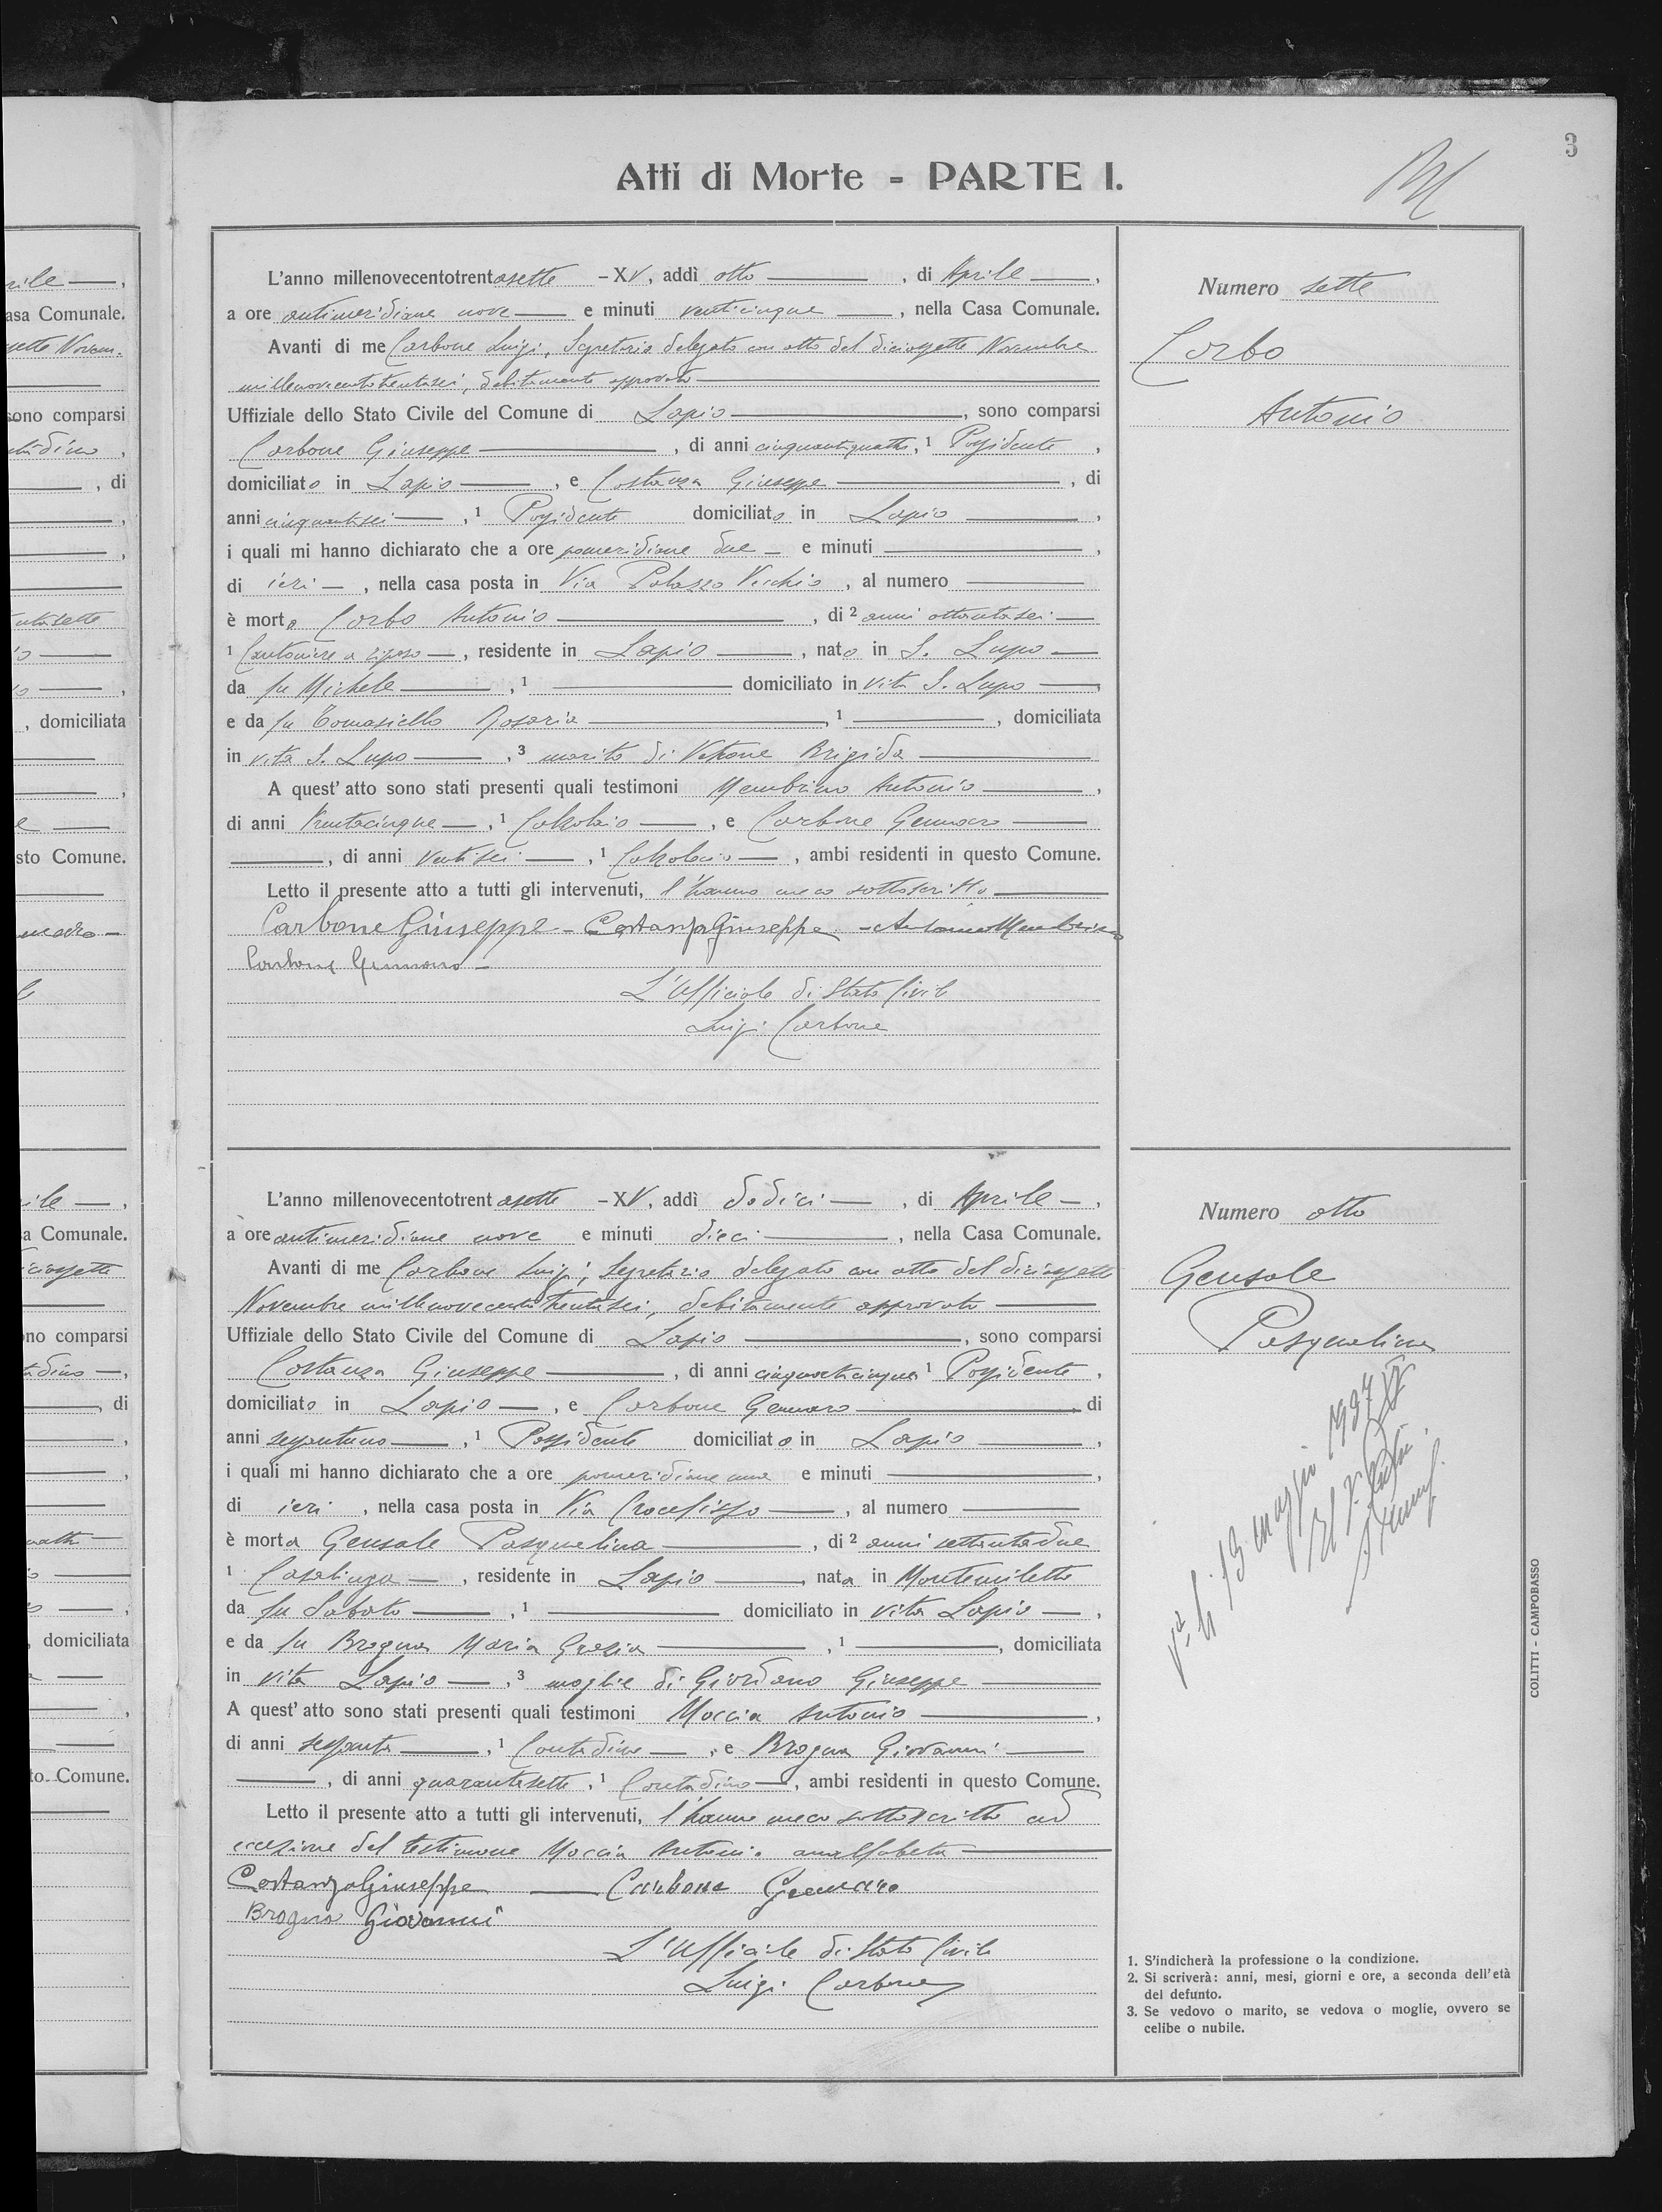 3
Atti di Morte - PARTE I.
L'anno millenovecentotrentasette - XV, addì otto, di Aprile,
a ore antimeridiane nove e minuti venticinque, nella Casa Comunale.
Avanti di me Carbone Luigi, Segretario delegato con atto del diciassette Novembre
millenovecentotrentasei, debitamente approvato
Uffiziale dello Stato Civile del Comune di Lapio, sono comparsi
Carbone Giuseppe, di anni cinquantaquattro, 1 Possidente,
domiciliato in Lapio, e Costanza Giuseppe, di
anni cinquantasei, 1 Possidente domiciliato in Lapio,
i quali mi hanno dichiarato che a ore pomeridiane due e minuti
di ieri, nella casa posta in Via Palazzo Vecchio, al numero
è morto Corbo Antonio, di 2 anni ottantasei
1 Cantoniere a riposo, residente in Lapio, nato in S. Lupo
da fu Michele, 1 domiciliato in vita S. Lupo,
e da fu Tomasiello Rosaria, 1, domiciliata
in vita S. Lupo, 3 marito di Vetrone Brigida
A quest'atto sono stati presenti quali testimoni Membrino Antonio,
di anni trentacinque, 1 Calzolaio, e Carbone Gennaro
, di anni ventisei, 1 Calzolaio, ambi residenti in questo Comune.
Letto il presente atto a tutti gli intervenuti, l'hanno meco sottoscritto
Carbone Giuseppe - Costanza Giuseppe - Antonio Membrino
Carbone Gennaro -
L'Ufficiale di Stato Civile
Luigi Carbone
Numero sette
Corbo
Antonio
L'anno millenovecentotrentasette - XV, addì dodici, di Aprile,
a ore antimeridiane nove e minuti dieci, nella Casa Comunale.
Avanti di me Carbone Luigi, Segretario delegato con atto del diciassette
Novembre millenovecentotrentasei, debitamente approvato
Uffiziale dello Stato Civile del Comune di Lapio, sono comparsi
Costanza Giuseppe, di anni cinquantacinque 1 Possidente,
domiciliato in Lapio, e Carbone Gennaro, di
anni sessantuno, 1 Possidente domiciliato in Lapio,
i quali mi hanno dichiarato che a ore pomeridiane una e minuti,
di ieri, nella casa posta in Via Crocefisso, al numero
è morta Gensale Pasqualina, di 2 anni settantadue
1 Casalinga, residente in Lapio, nata in Montemiletto
da fu Sabato, 1 domiciliato in vita Lapio,
e da fu Brogna Maria Grazia, 1, domiciliata
in vita Lapio, 3 moglie di Giordano Giuseppe
A quest'atto sono stati presenti quali testimoni Moccia Antonio,
di anni sessanta, 1 Contadino, e Brogna Giovanni
, di anni quarantasette, 1 Contadino, ambi residenti in questo Comune.
Letto il presente atto a tutti gli intervenuti, l'hanno meco sottoscritto ad
eccezione del testimone Moccia Antonio analfabeta
Costanza Giuseppe Carbone Gennaro
Brogna Giovanni
L'Ufficiale di Stato Civile
Luigi Carbone
Numero otto
Gensale
Pasqualina
13 maggio 1937 XV
1. S'indicherà la professione o la condizione.
2. Si scriverà: anni, mesi, giorni e ore, a seconda dell'età
del defunto.
3. Se vedovo o marito, se vedova o moglie, ovvero se
celibe o nubile.
COLITTI - CAMPOBASSO